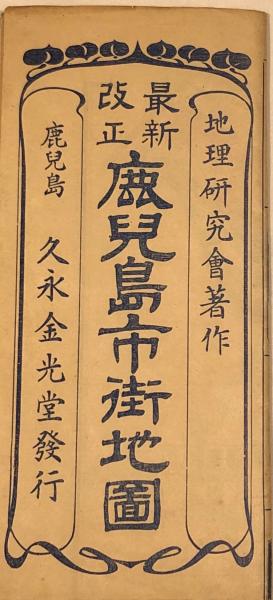 地理研究會著作
最新
改正
鹿兒島市街地圖
鹿兒島 久永金光堂發行